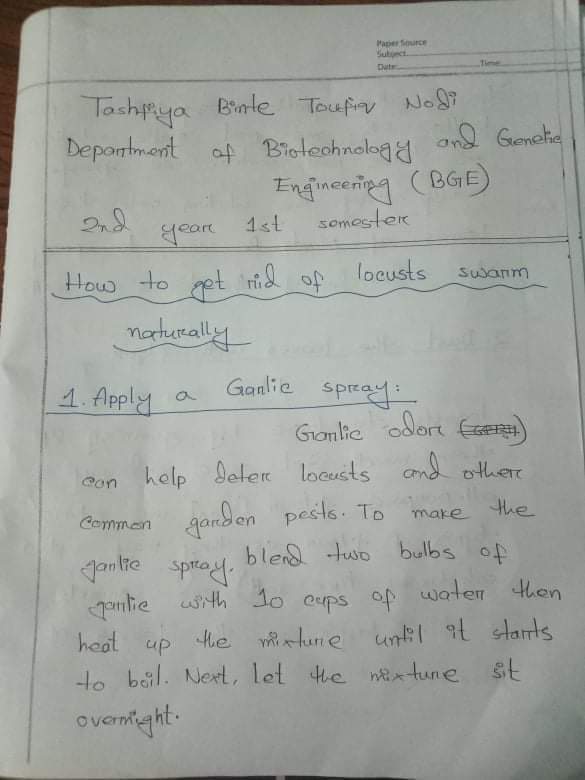 Paper Source
Subject:
Date: Time:
Tashfiya Binte Toufiq Nodi
Department of Biotechnology and Genetic
Engineering (BGE)
2nd year 1st semester
How to get rid of locusts swarm
naturally
1. Apply a Garlic spray:
Garlic odor
can help deter locusts and other
common garden pests. To make the
garlic spray, blend two bulbs of
garlic with 10 cups of water then
heat up the mixture until it starts
to boil. Next, let the mixture sit
overnight.